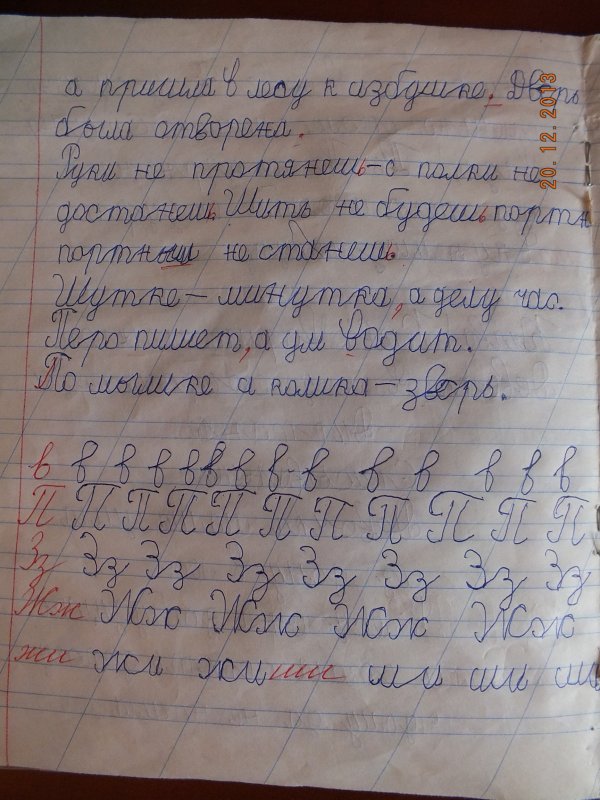 а пришла в лесу к избушке. Дверь
была отворена.
Руки не протянешь-с полки не
достанешь. Шить не будешь портн
портным не станешь.
Шутке - минутка, а делу час.
Перо пишет, а ум водит.
По мышке и кошка - зверь.
в в в в в в в в в в в в в в
П П П П П П П П П П П
Зз Зз Зз Зз Зз Зз Зз Зз
Жж Жж Жж Жж Жж
жи жи жи ши ши ши ши
20.12.2013